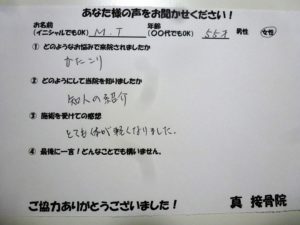 あなた様の声をお聞かせください！
お名前 年齢
(イニシャルでもOK) M.T (〇〇代でもOK) 55才 男性 女性
① どのようなお悩みで来院されましたか
かたこり
② どのようにして当院を知りましたか
知人の紹介
③ 施術を受けての感想
とても体が軽くなりました。
④ 最後に一言！どんなことでも構いません。
ご協力ありがとうございました！ 真 接骨院